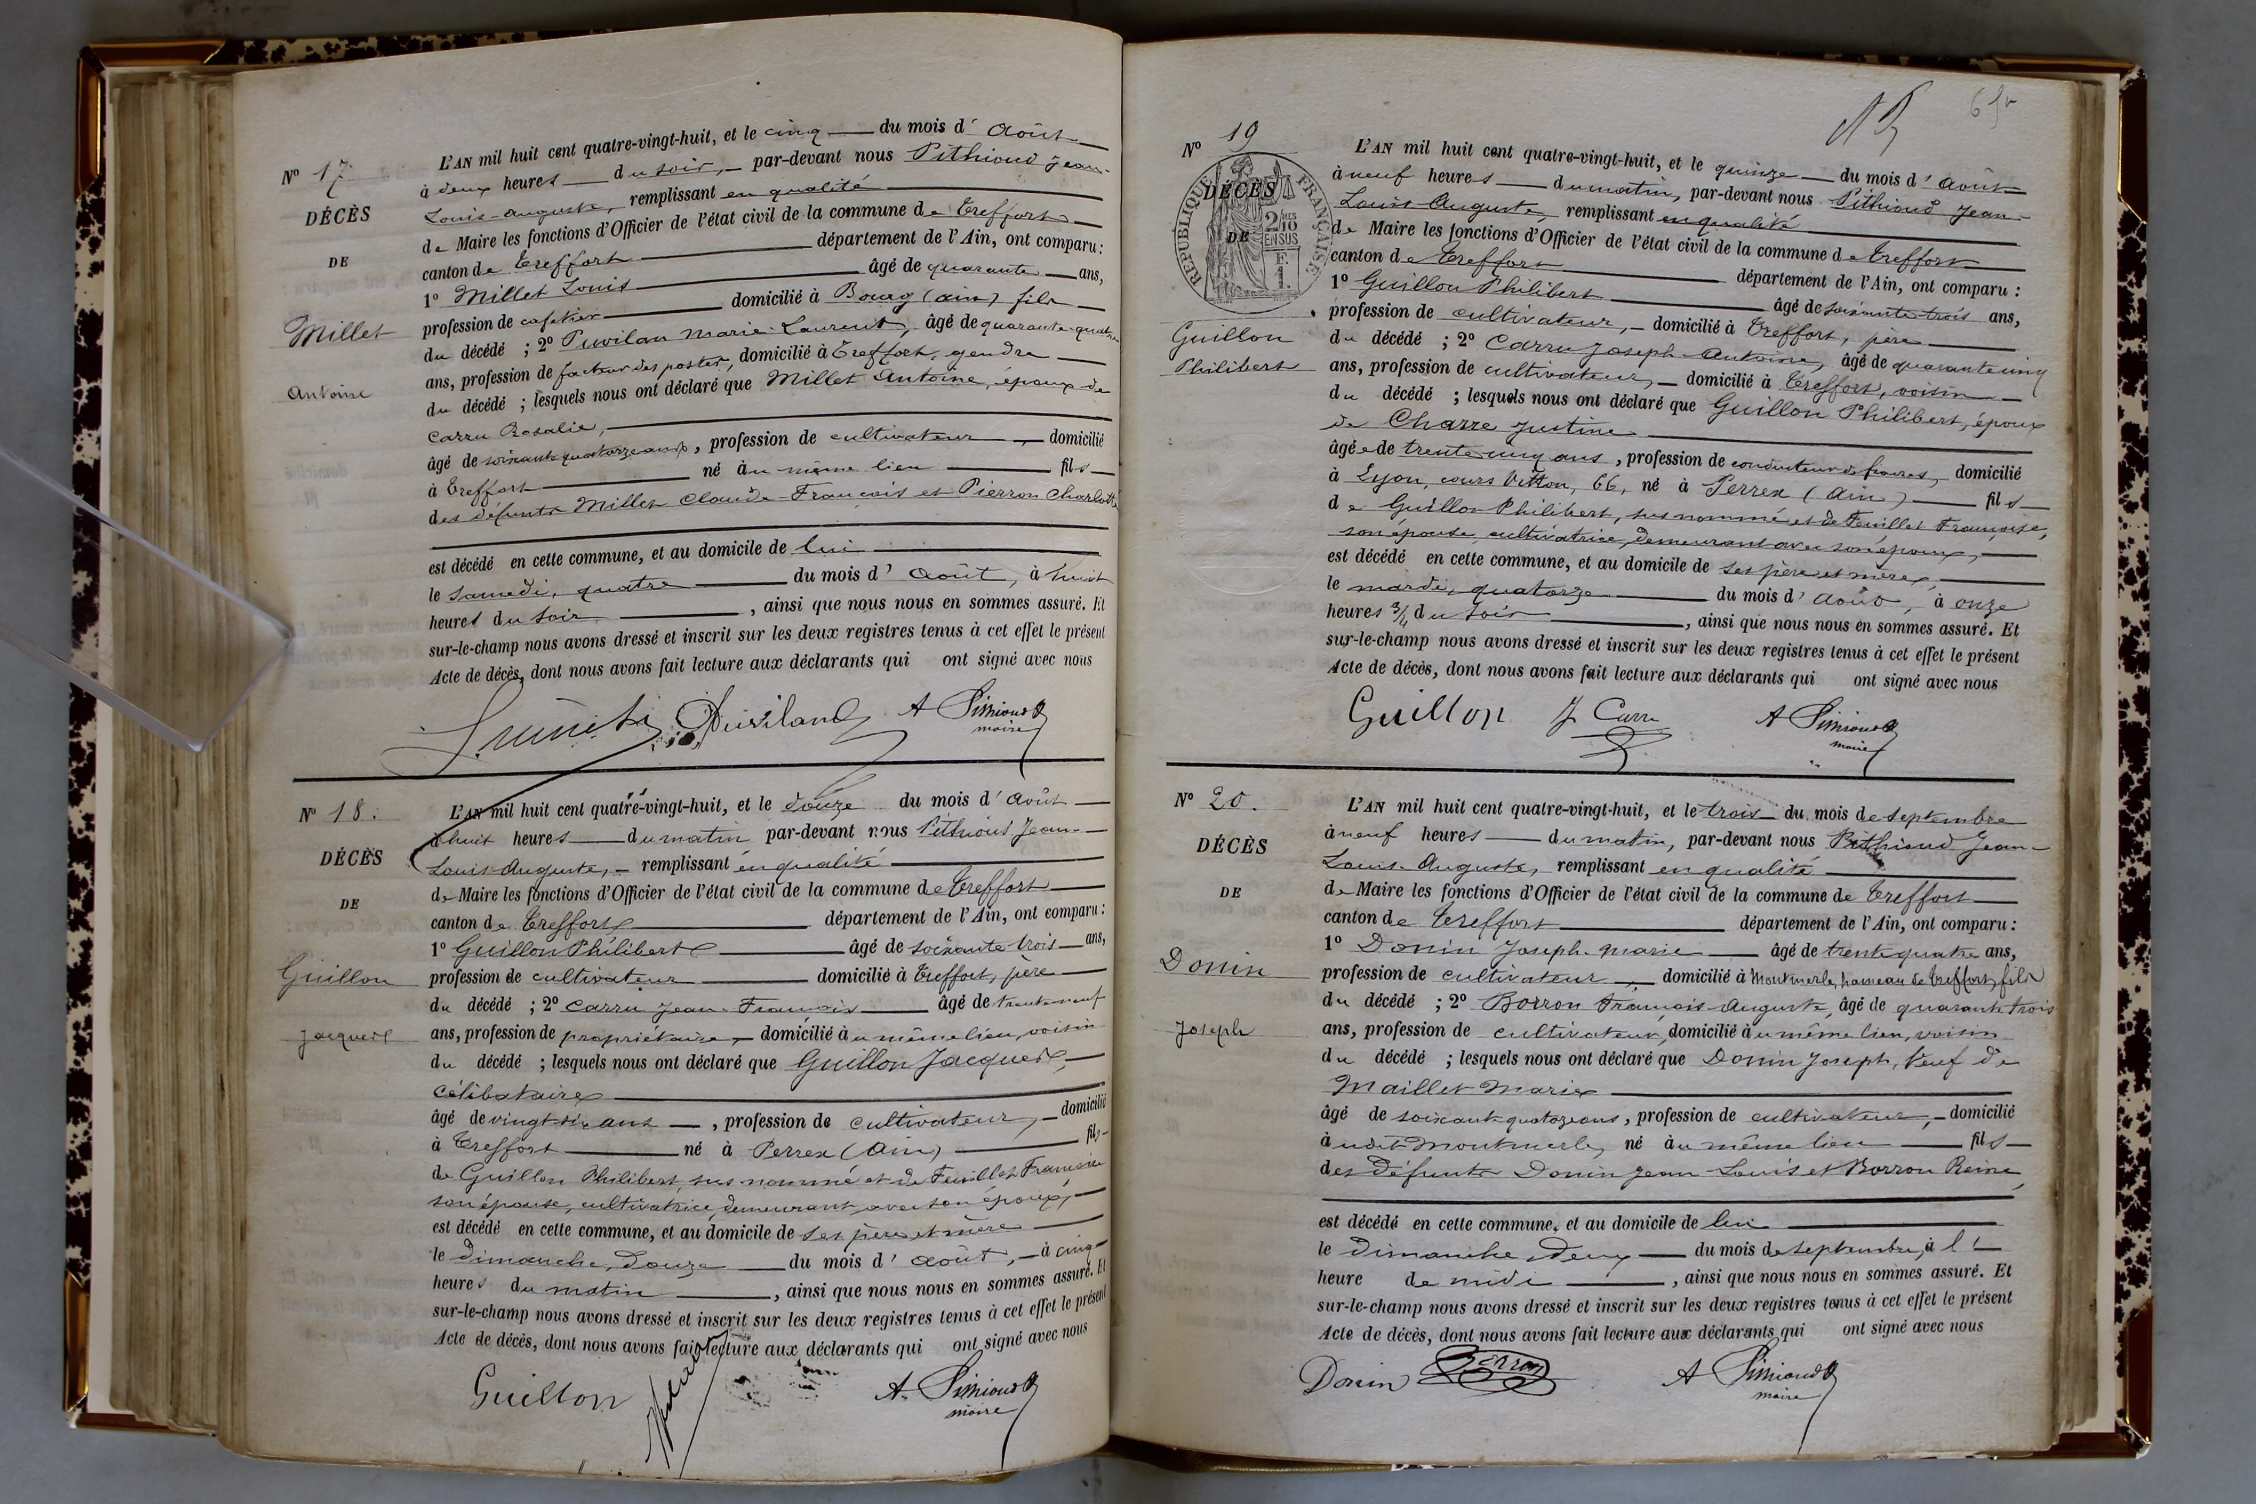 N° 17
DÉCÈS
DE
Millet
Antoine
L'AN mil huit cent quatre-vingt-huit, et le cinq du mois d'Août
à deux heures du soir, par-devant nous Pithioud Jean-
Louis-Auguste, remplissant en qualité
de Maire les fonctions d'Officier de l'état civil de la commune de Treffort
canton de Treffort département de l'Ain, ont comparu :
1° Millet Louis âgé de quarante ans,
profession de cafetier domicilié à Bourg (ain) fils
du décédé ; 2° Puvilan Marie-Laurent, âgé de quarante-quatre
ans, profession de facteur des postes, domicilié à Treffort, gendre
du décédé ; lesquels nous ont déclaré que Millet Antoine, époux de
Carru Rosalie,
âgé de soixante quatorze ans, profession de cultivateur, domicilié
à Treffort né au même lieu fils
des défunts Millet Claude-François et Pierron Charlotte
est décédé en cette commune, et au domicile de lui
le samedi, quatre du mois d'Août, à huit
heures du soir, ainsi que nous nous en sommes assuré. Et
sur-le-champ nous avons dressé et inscrit sur les deux registres tenus à cet effet le présent
Acte de décès, dont nous avons fait lecture aux déclarants qui ont signé avec nous
A Pithioud
maire
N° 18.
DÉCÈS
DE
Guillon
Jacques
L'AN mil huit cent quatre-vingt-huit, et le douze du mois d'Août
à huit heures du matin par-devant nous Pithioud Jean-
Louis-Auguste, remplissant en qualité
de Maire les fonctions d'Officier de l'état civil de la commune de Treffort
canton de Treffort département de l'Ain, ont comparu :
1° Guillon Philibert âgé de soixante trois ans,
profession de cultivateur domicilié à Treffort, père
du décédé ; 2° Carru Jean-François âgé de trente-neuf
ans, profession de propriétaire, domicilié au même lieu, voisin
du décédé ; lesquels nous ont déclaré que Guillon Jacques,
célibataire
âgé de vingt-six ans, profession de cultivateur, domicilié
à Treffort né à Perrex (Ain) fils
de Guillon Philibert, sus nommé et de Feuillet Françoise
son épouse, cultivatrice, demeurant avec son époux,
est décédé en cette commune, et au domicile de ses père et mère
le dimanche, douze du mois d'août, à cinq
heures du matin, ainsi que nous nous en sommes assuré. Et
sur-le-champ nous avons dressé et inscrit sur les deux registres tenus à cet effet le présent
Acte de décès, dont nous avons fait lecture aux déclarants qui ont signé avec nous
Guillon
A. Pithioud
maire
N° 19
DÉCÈS
DE
RÉPUBLIQUE FRANÇAISE
2/10
EN SUS
F.
1.
Guillon
Philibert
L'AN mil huit cent quatre-vingt-huit, et le quinze du mois d'Août
à neuf heures du matin, par-devant nous Pithioud Jean-
Louis Auguste, remplissant en qualité
de Maire les fonctions d'Officier de l'état civil de la commune de Treffort
canton de Treffort département de l'Ain, ont comparu :
1° Guillon Philibert âgé de soixante-trois ans,
profession de cultivateur, domicilié à Treffort, père
du décédé ; 2° Carru Joseph-Antoine, âgé de quarante cinq
ans, profession de cultivateur, domicilié à Treffort, voisin
du décédé ; lesquels nous ont déclaré que Guillon Philibert, époux
de Charre Justine
âgé de trente cinq ans, profession de conducteur de fiacres, domicilié
à Lyon, cours Vitton, 66, né à Perrex (Ain) fils
de Guillon Philibert, sus nommé et de Feuillet Françoise,
son épouse, cultivatrice, demeurant avec son époux,
est décédé en cette commune, et au domicile de ses père et mère,
le mardi, quatorze du mois d'Août, à onze
heures 3/4 du soir, ainsi que nous nous en sommes assuré. Et
sur-le-champ nous avons dressé et inscrit sur les deux registres tenus à cet effet le présent
Acte de décès, dont nous avons fait lecture aux déclarants qui ont signé avec nous
Guillon
J Carru
A Pithioud
maire
N° 20.
DÉCÈS
DE
Donin
Joseph
L'AN mil huit cent quatre-vingt-huit, et le trois du mois de septembre
à neuf heures du matin, par-devant nous Pithioud Jean-
Louis-Auguste, remplissant en qualité
de Maire les fonctions d'Officier de l'état civil de la commune de Treffort
canton de Treffort département de l'Ain, ont comparu :
1° Donin Joseph-Marie âgé de trente quatre ans,
profession de cultivateur, domicilié à Montmerle, hameau de Treffort, fils
du décédé ; 2° Borron François-Auguste, âgé de quarante trois
ans, profession de cultivateur, domicilié au même lieu, voisin
du décédé ; lesquels nous ont déclaré que Donin Joseph, Veuf de
Maillet Marie
âgé de soixante quatorze ans, profession de cultivateur, domicilié
à udit Montmerle, né au même lieu fils
des défunts Donin Jean-Louis et Borron Reine,
est décédé en cette commune, et au domicile de lui
le Dimanche Deux du mois de septembre, à l'
heure de midi, ainsi que nous nous en sommes assuré. Et
sur-le-champ nous avons dressé et inscrit sur les deux registres tenus à cet effet le présent
Acte de décès, dont nous avons fait lecture aux déclarants qui ont signé avec nous
Donin
Borron
A Pithioud
maire